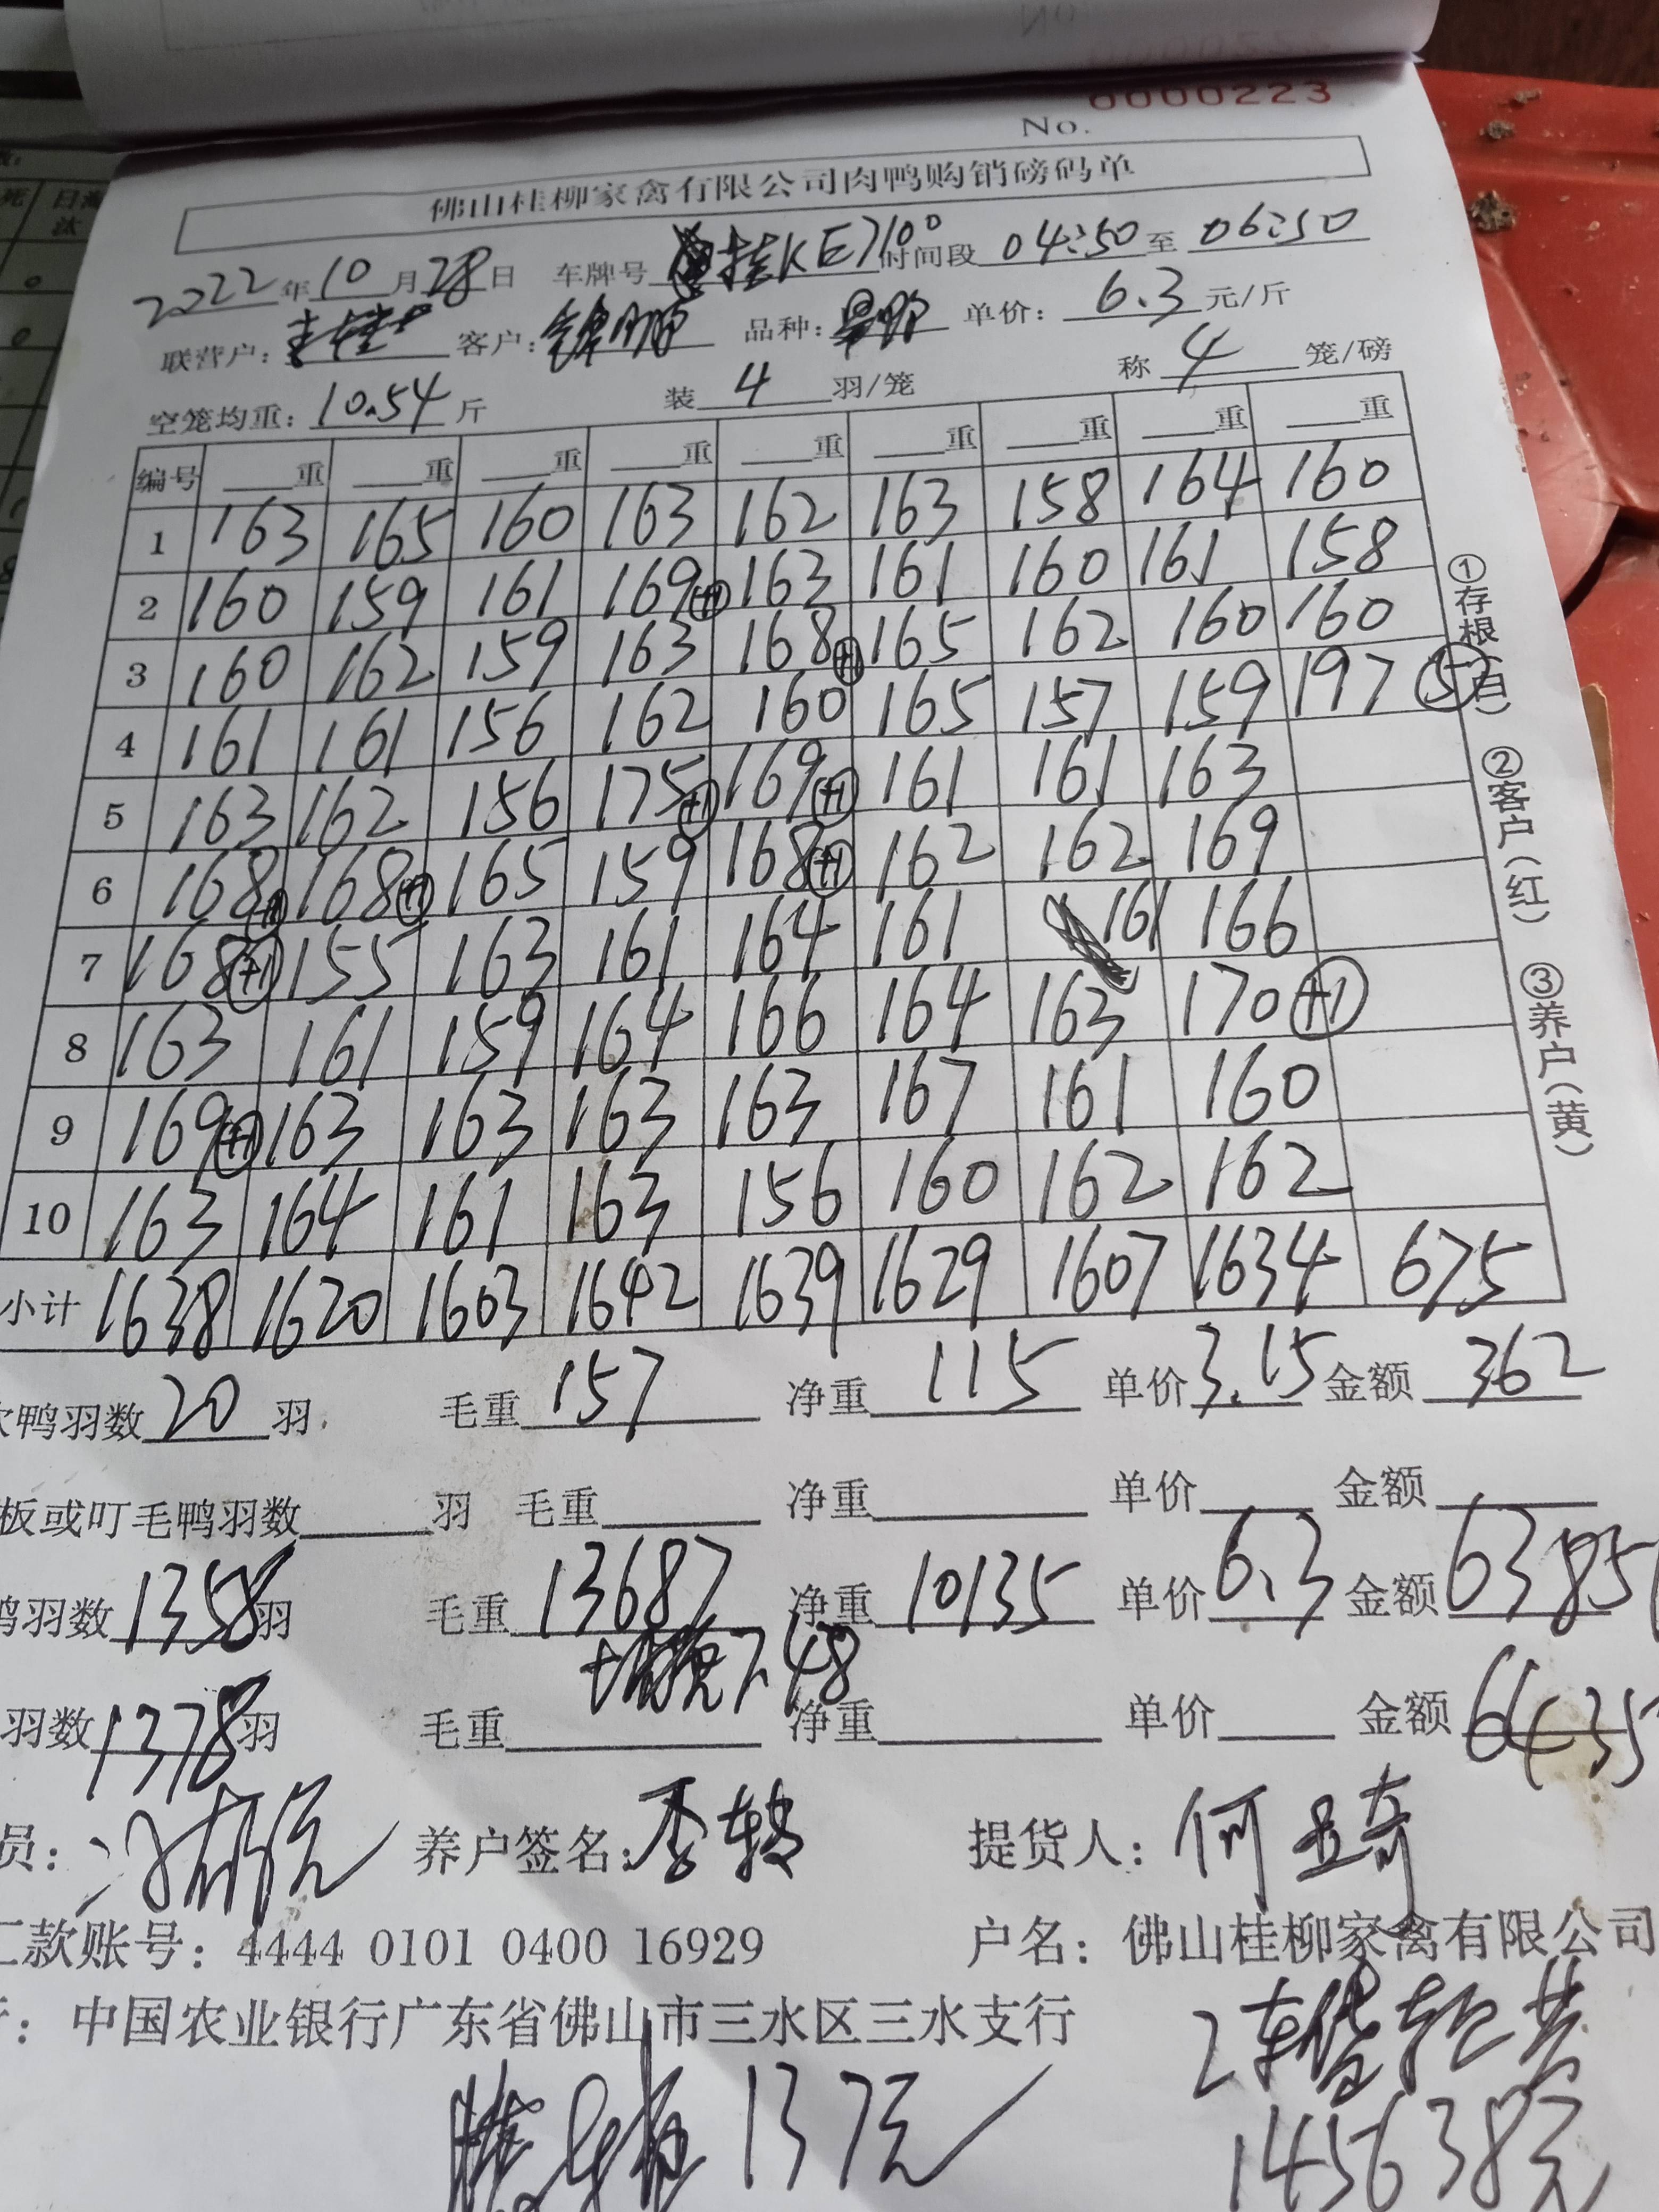 0000223
No.
佛山桂柳家禽有限公司肉鸭购销磅码单
2022年10月28日 车牌号 桂KE710 时间段 04:50 至 06:50
联营户: 客户: 品种: 单价: 6.3 元/斤
空笼均重: 10.54 斤 装 4 羽/笼 称 4 笼/磅
编号 重 重 重 重 重 重 重 重 重
1 163 165 160 163 162 163 158 164 160
2 160 159 161 169 +1 163 161 160 161 158
3 160 162 159 163 168 +1 165 162 160 160
4 161 161 156 162 160 165 157 159 197 5
5 163 162 156 175 +1 169 +1 161 161 163
6 168 +1 168 +1 165 159 168 +1 162 162 169
7 168 +1 155 163 161 164 161 161 166
8 163 161 159 164 166 164 163 170 +1
9 169 +1 163 163 163 163 167 161 160
10 163 164 161 163 156 160 162 162
小计 1638 1620 1603 1642 1639 1629 1607 1634 675
①存根(白) ②客户(红) ③养户(黄)
鸭羽数 20 羽 毛重 157 净重 115 单价 3.15 金额 362
板或叮毛鸭羽数 羽 毛重 净重 单价 金额
鸭羽数 1358 羽 毛重 13687 净重 10135 单价 6.3 金额 63851
7.48
羽数 1378 羽 毛重 净重 单价 金额 6435
员: 养户签名: 李转 提货人: 何亚奇
汇款账号: 4444 0101 0400 16929 户名: 佛山桂柳家禽有限公司
行: 中国农业银行广东省佛山市三水区三水支行
2车
137元
145638元